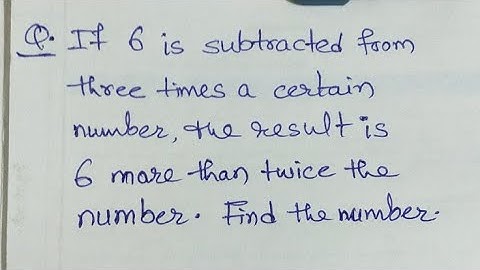 Q. If 6 is subtracted from
three times a certain
number, the result is
6 more than twice the
number. Find the number.